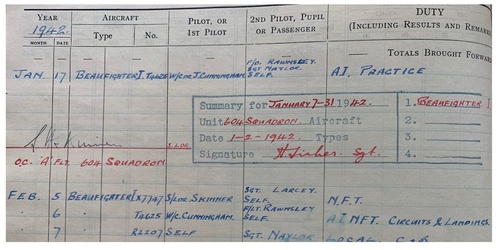 YEAR AIRCRAFT PILOT, OR 2ND PILOT, PUPIL DUTY
1942. Type No. 1ST PILOT OR PASSENGER (INCLUDING RESULTS AND REMARKS
MONTH DATE
— — — — — — TOTALS BROUGHT FORWARD
F/O. RAWNSLEY.
SGT NAYLOR.
JAN. 17 BEAUFIGHTER I. T4625 W/CDR J. CUNNINGHAM. SELF. A.I. PRACTICE
Summary for JANUARY 1-31 1942. 1. BEAUFIGHTER I
Unit 604 SQUADRON. Aircraft 2.
Date 1-2-1942. Types 3.
Signature Sgt. 4.
S/LDR.
O.C. 'A' FLT. 604 SQUADRON.
SGT. LARCEY.
FEB. 5 BEAUFIGHTER I X7747 S/LDR SKINNER SELF. N.F.T.
F/LT. RAWNSLEY
6 T4625 W/C CUNNINGHAM. SELF. A.I. NFT. CIRCUITS & LANDINGS.
7 R2207 SELF SGT. NAYLOR LOCAL